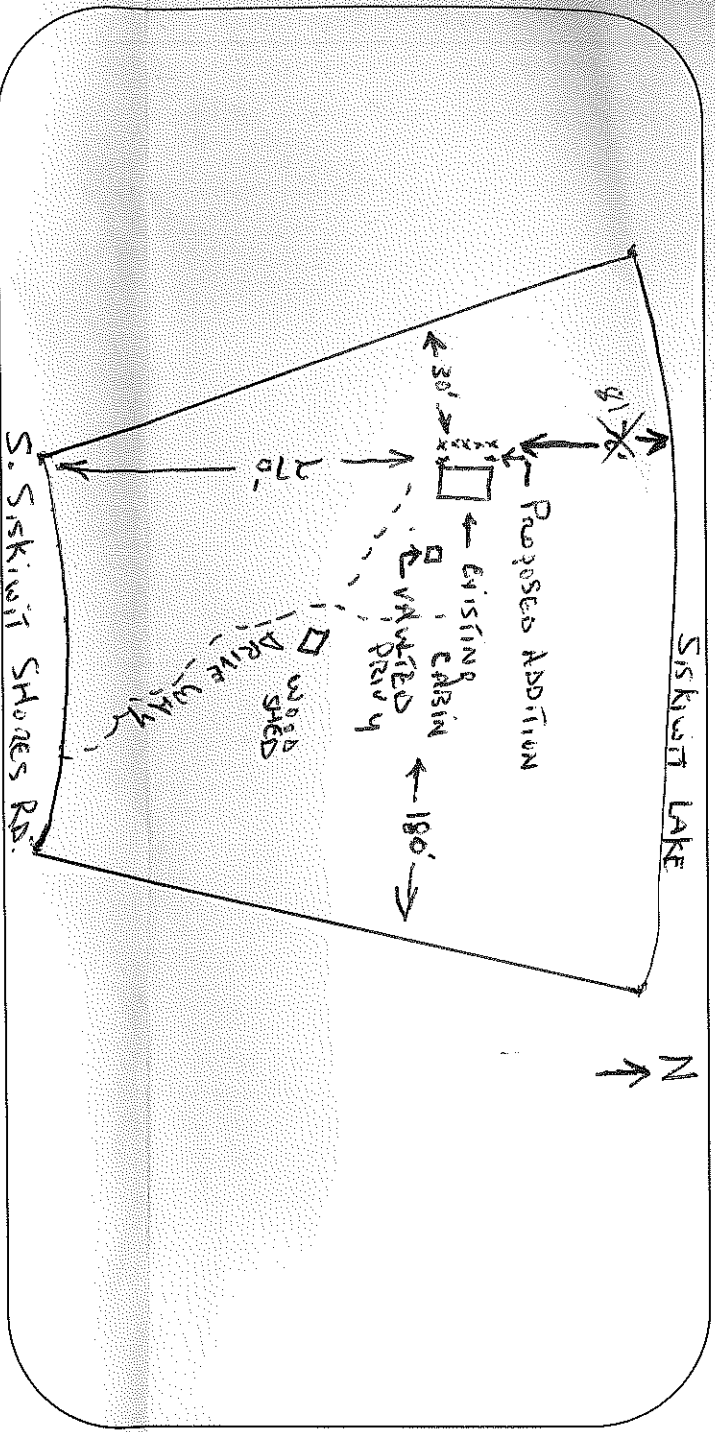 SISKIWIT LAKE
N
PROPOSED ADDITION
EXISTING
CABIN
VAULTED
PRIVY
30'
180'
270'
WOOD
SHED
DRIVE WAY
S. SISKIWIT SHORES RD.